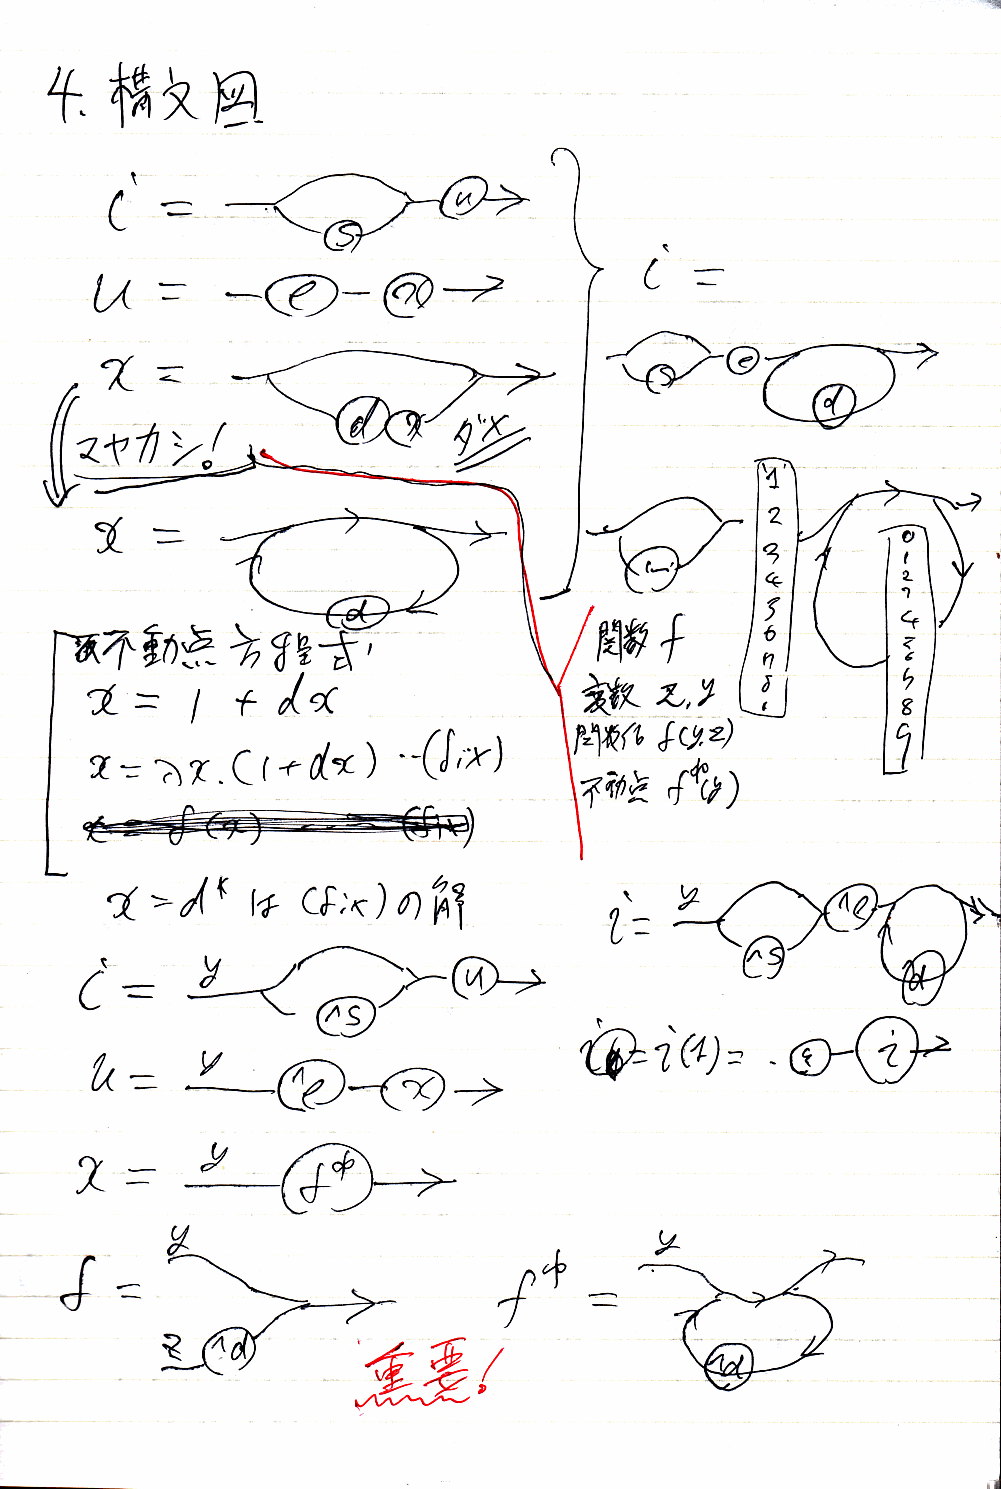 4. 構文図
i =
s
u
u =
e
x
x =
d
x
マヤカシ!
ダメ
x =
d
不動点方程式
x = 1 + dx
x = λx.(1+dx) …(fix)
x = d* は (fix) の解
i =
y
^s
u
u =
y
^e
x
x =
y
f^Φ
f =
y
z
^d
重要!
i =
s
e
d
'1'
2
3
4
5
6
7
8
0
1
2
3
4
8
9
関数 f
変数 z, y
関数値 f(y,z)
不動点 f^Φ(y)
i =
y
^s
^e
^d
= i(1) =
ε
i
f^Φ =
y
^d